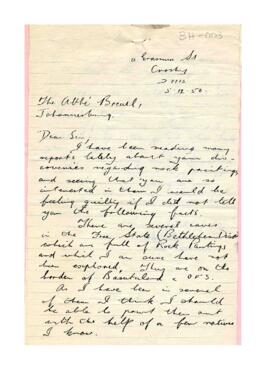 BH-003
Erasmus St
Crosby
5.12.50.
The Abbé Breuil,
Johannesburg.
Dear Sir,
I have been reading many
reports lately about your dis-
coveries regarding rock paintings
and seeing that you are so
interested in them I would be
feeling guilty if I did not tell
you the following facts.
There are several caves
in the Free State (Bethlehem Dist)
which are full of Rock Paintings
and which I am sure have not
been explored. They are on the
border of Basutuland & OFS.
As I have been in several
of them I think I should
be able to point them out
with the help of a few natives
I know.